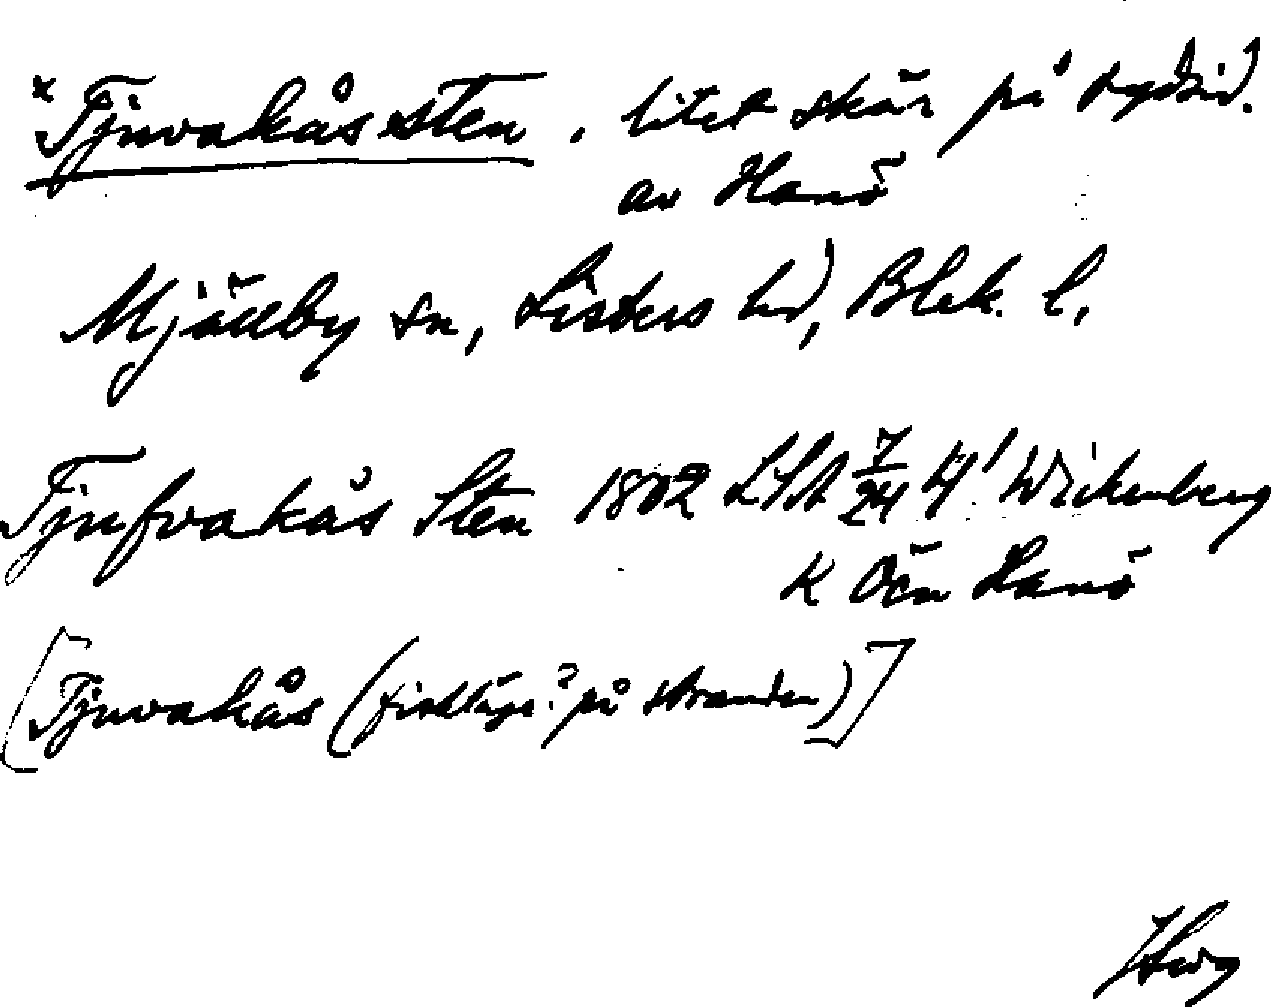 *Tjuvakåssten, litet skär på sydsid.
av Hanö
Mjällby sn, Listers hd, Blek. l.
Tjufvakås Sten 1802 LSA 7/24 Wickenberg
K Ön Hanö
[Tjuvakås (fiskläge? på stranden)]